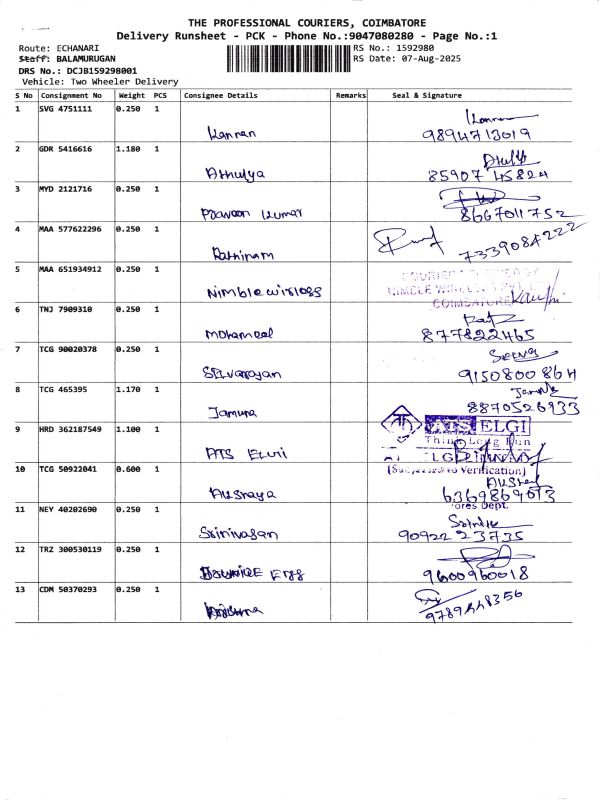 THE PROFESSIONAL COURIERS, COIMBATORE
Delivery Runsheet - PCK - Phone No.:9047080280 - Page No.:1
Route: ECHANARI RS No.: 1592980
Staff: BALAMURUGAN RS Date: 07-Aug-2025
DRS No.: DCJB159298001
Vehicle: Two Wheeler Delivery
S No Consignment No Weight PCS Consignee Details Remarks Seal & Signature
1 SVG 4751111 0.250 1
Kannan 9894713019
2 GDR 5416616 1.180 1
Athulya 8590745824
3 MYD 2121716 0.250 1
Praveen Kumar 8667011752
4 MAA 577622296 0.250 1
Rathinam 7339084222
5 MAA 651934912 0.250 1
Nimblewireless COIMBATORE
6 TNJ 7909310 0.250 1
Mohameed 877822465
7 TCG 90020378 0.250 1
Selvarayan 9150800864
8 TCG 465395 1.170 1
Jamuna 8870526933
9 HRD 362187549 1.100 1
ATS ELGI
Think Long Run
ATS Elgi
10 TCG 50922041 0.600 1
(Subjected to Verification)
Akshaya 6369869013
Stores Dept.
11 NEY 40202690 0.250 1
Srinivasan 9092223735
12 TRZ 300530119 0.250 1
9600960018
13 CDM 50370293 0.250 1
Krishna 9789448356